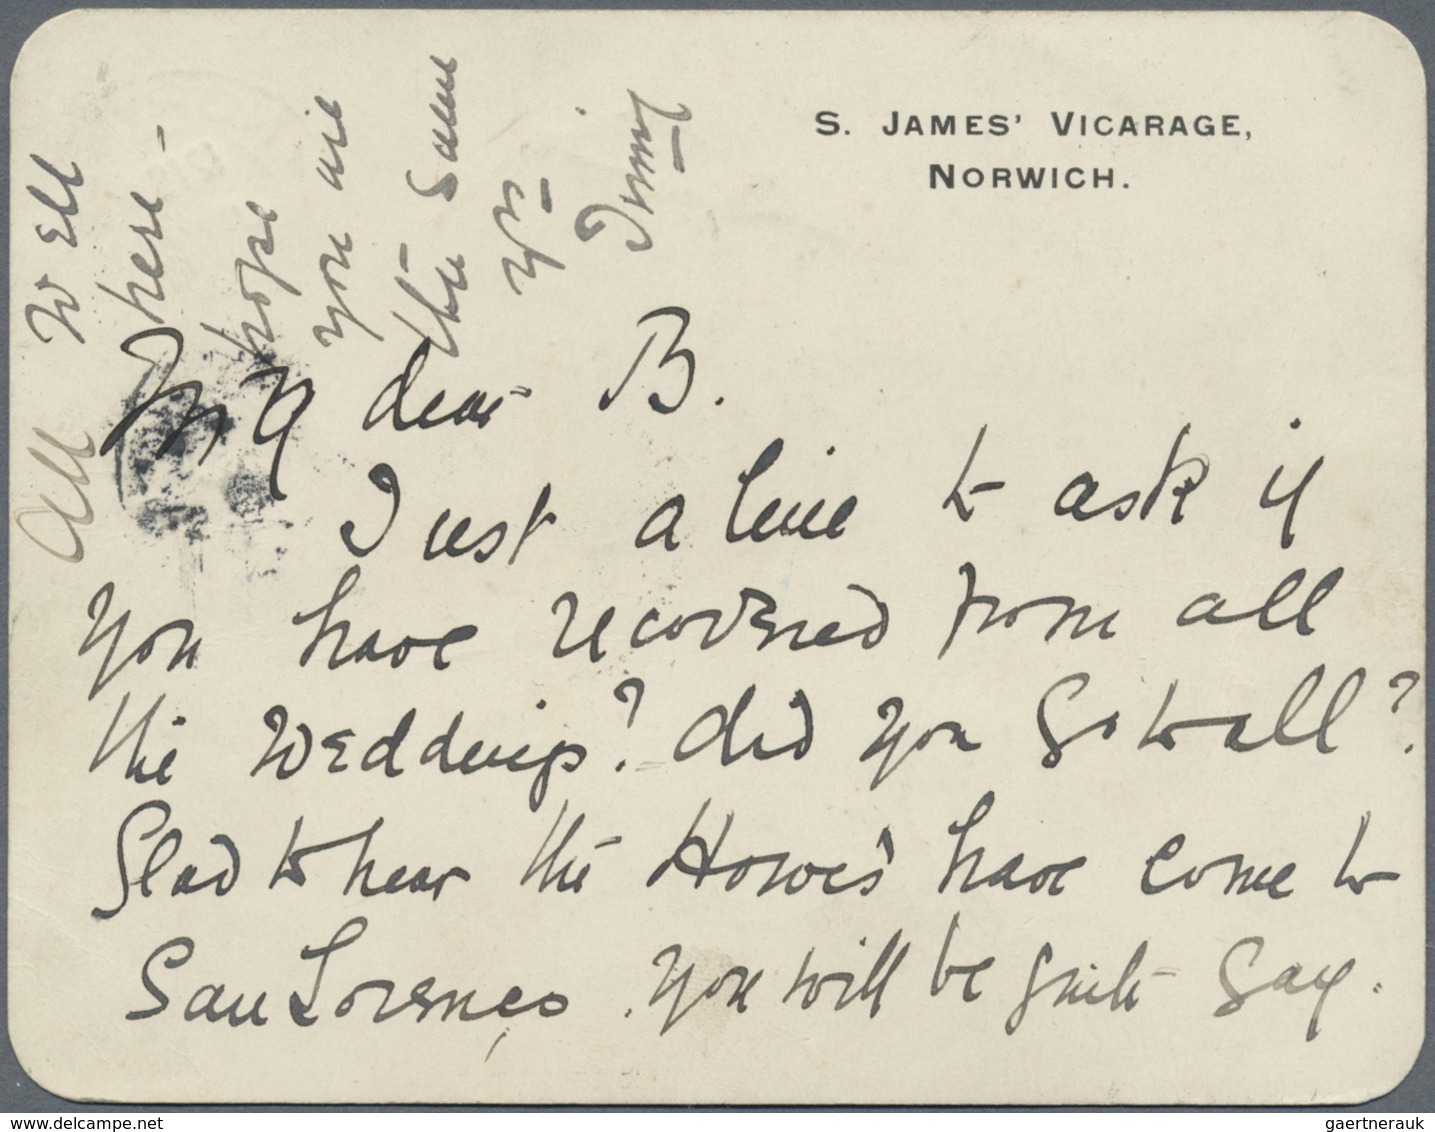 S. JAMES' VICARAGE,
NORWICH.
My dear B.
Just a line to ask if
you have recovered from all
the weddings? did you go to all?
Glad to hear the Howes have come to
San Lorenço. You will be quite gay.
All well
here -
hope
you are
the same
Yrs
www.delcampe.net
gaertnerauk